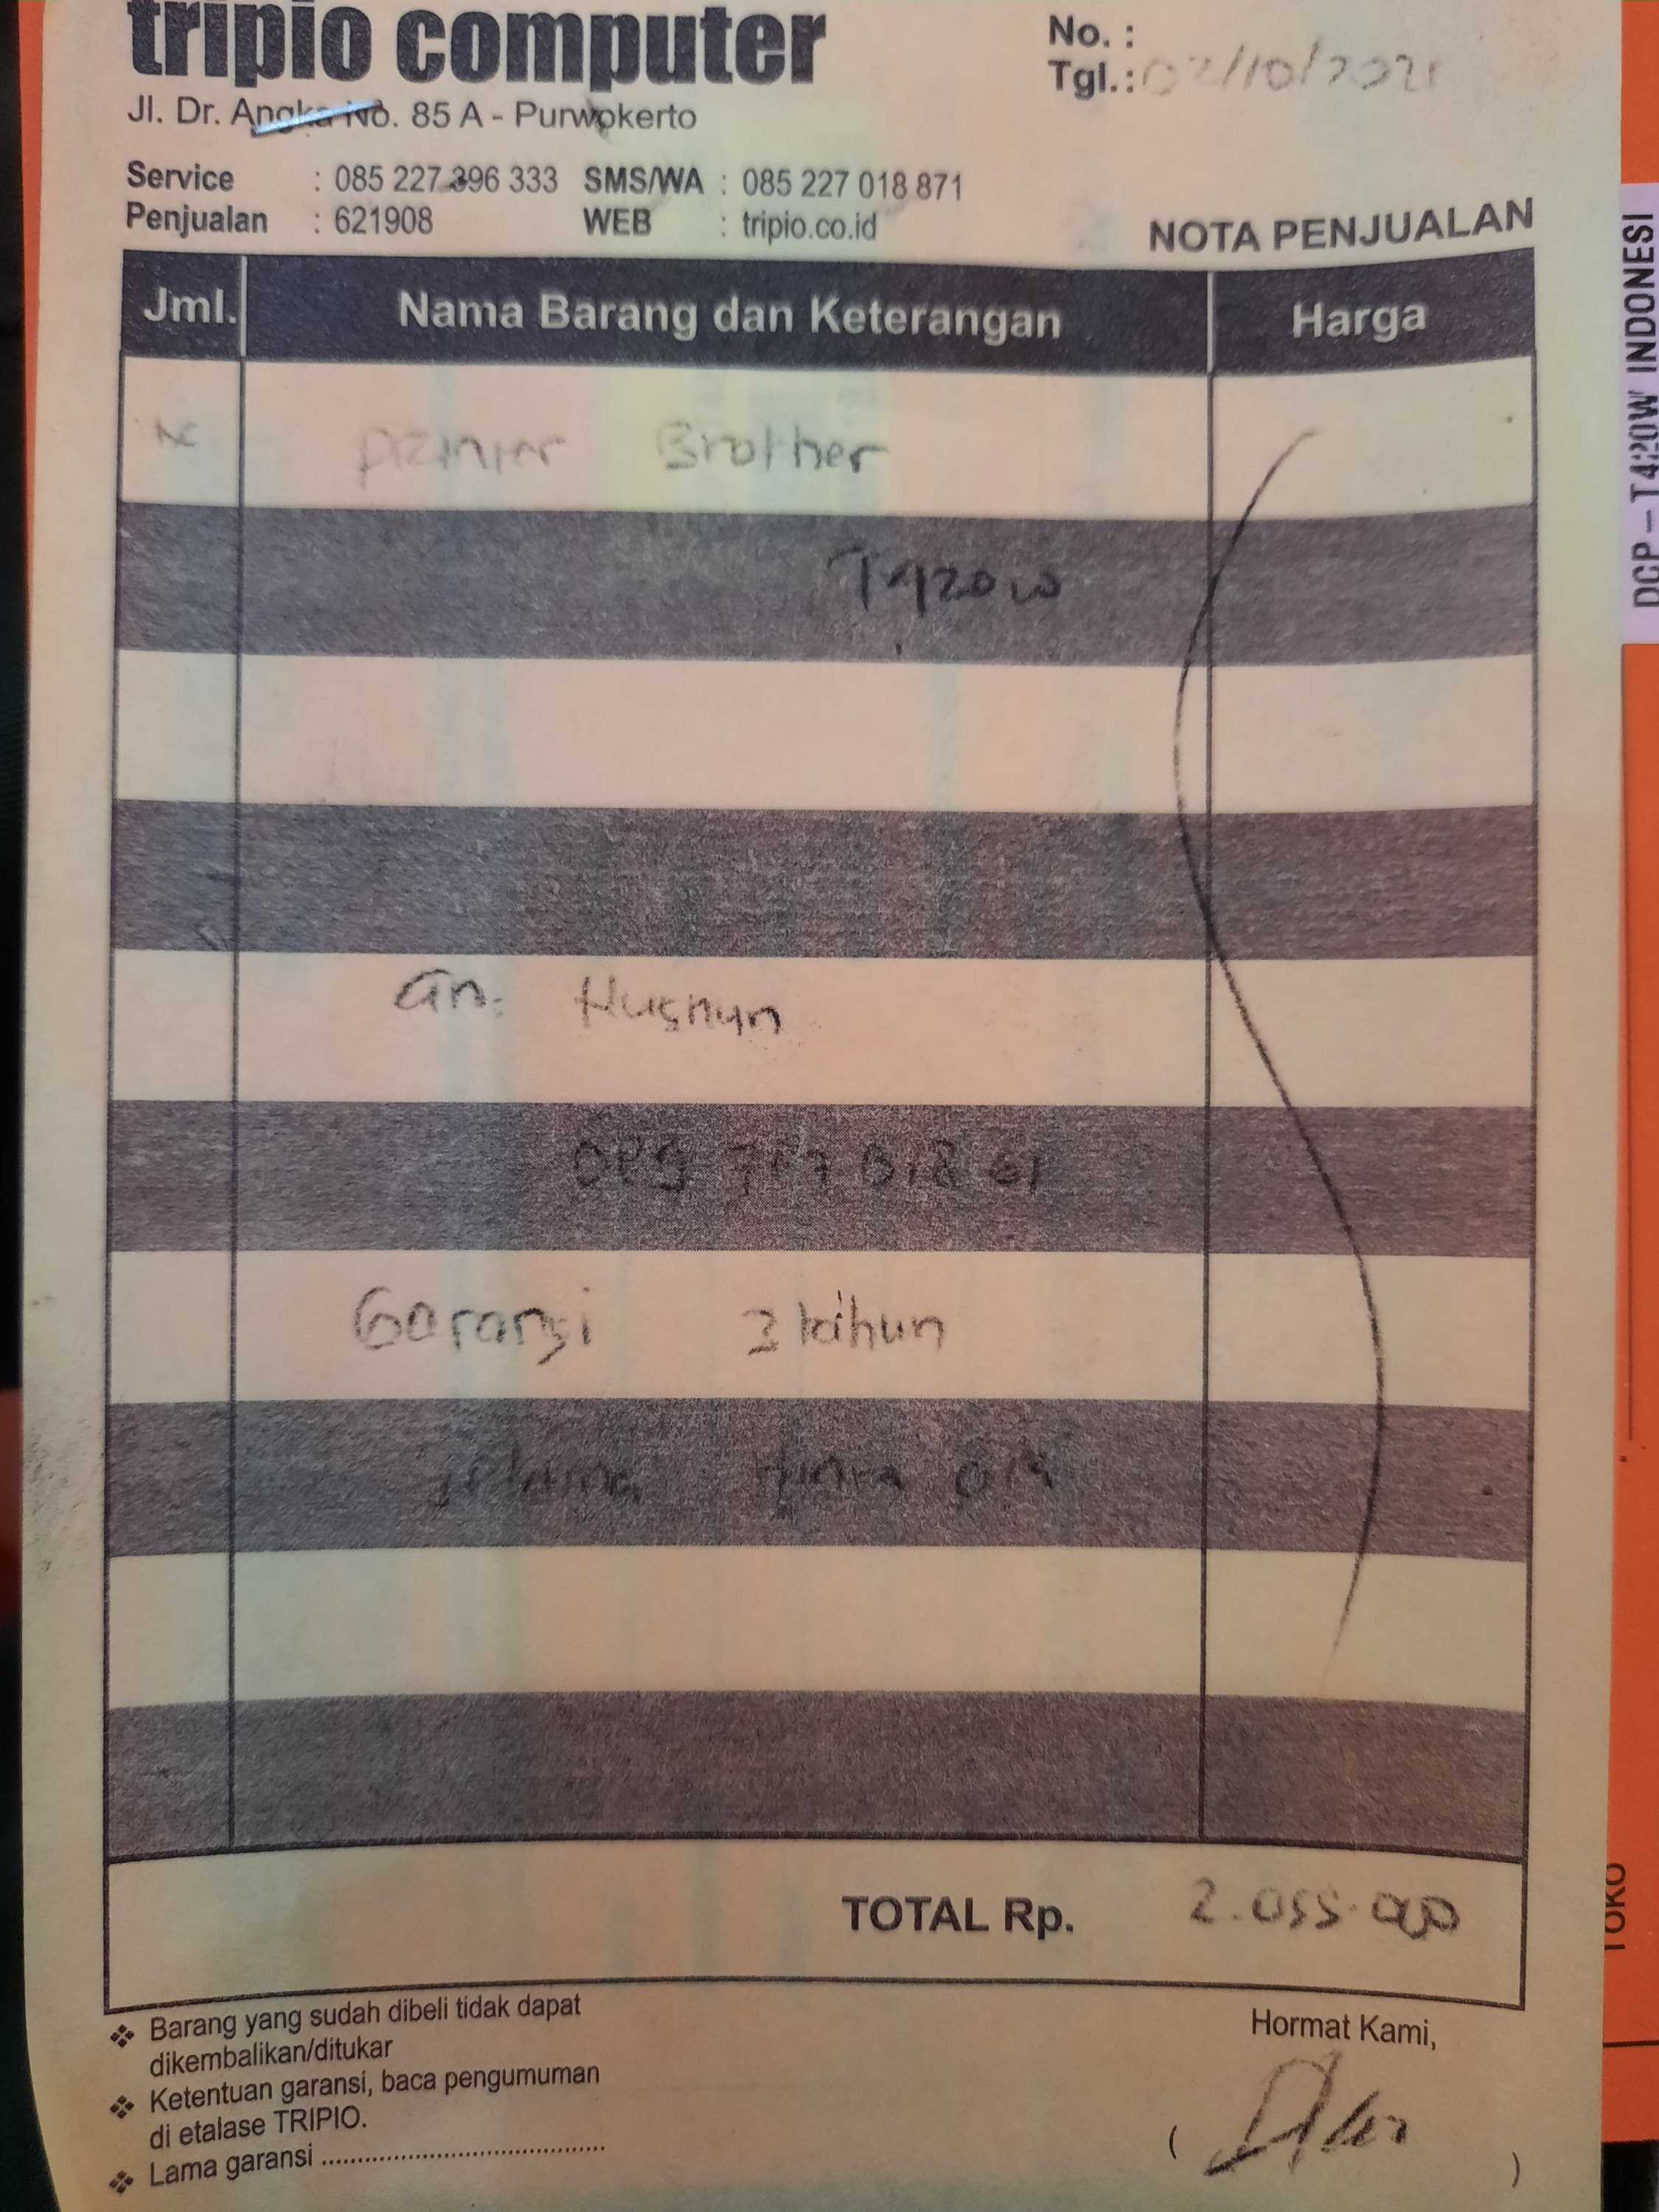 tripio computer
No. :
Tgl.: 02/10/2021
Jl. Dr. Angka No. 85 A - Purwokerto
Service : 085 227 396 333 SMS/WA : 085 227 018 871
Penjualan : 621908 WEB : tripio.co.id
NOTA PENJUALAN
Jml. Nama Barang dan Keterangan Harga
Brother
T420W
an. Husnun
Garansi
TOTAL Rp. 2.055.000
Barang yang sudah dibeli tidak dapat
dikembalikan/ditukar
Ketentuan garansi, baca pengumuman
di etalase TRIPIO.
Lama garansi ..........................................
Hormat Kami,
( )
DCP-T420W INDONESI
TOKO